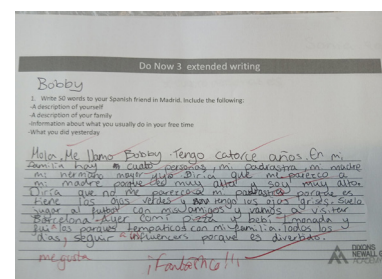 Do Now 3 extended writing
Bobby
1. Write 50 words to your Spanish friend in Madrid. Include the following:
-A description of yourself
-A description of your family
-Information about what you usually do in your free time
-What you did yesterday
Hola, Me llamo Bobby. Tengo catorce años. En mi
familia hay cuatro personas, mi padrastro, mi madre
mi hermano mayor y yo. Diría que me parezco a
mi madre porque es muy alto y soy muy alto.
Diría que no me parezco a mi padrastro porque es
tiene los ojos verdes y yo tengo los ojos grises. Suelo
jugar al fútbol con mis amigos y vamos a visitar
Barcelona. Ayer comí pizza y bebí limonada y
fui los parques tempaticos con mi familia. Todos los
días, seguir influencers porque es divertido.
me gusta
¡Fantástico!!
DIXONS
NEWALL
ACADEMY